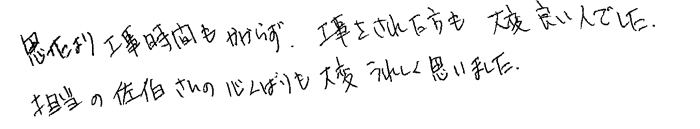 思たより工事時間もかからず、工事をされた方も大変良い人でした.
担当の佐伯さんの心くばりも大変うれしく思いました.